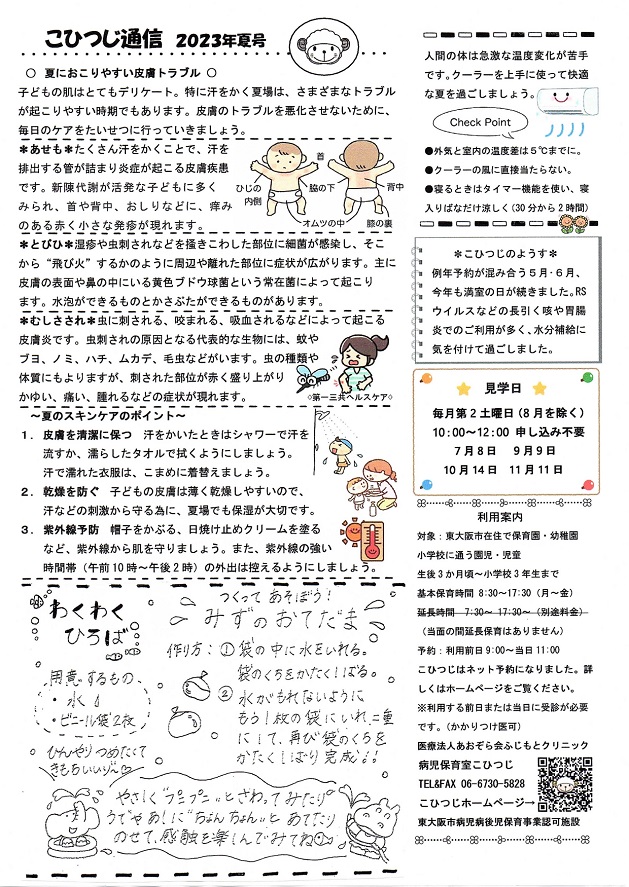 こひつじ通信 2023年夏号
○ 夏におこりやすい皮膚トラブル ○
子どもの肌はとてもデリケート。特に汗をかく夏場は、さまざまなトラブル
が起こりやすい時期でもあります。皮膚のトラブルを悪化させないために、
毎日のケアをたいせつに行っていきましょう。
＊あせも＊たくさん汗をかくことで、汗を
排出する管が詰まり炎症が起こる皮膚疾患
です。新陳代謝が活発な子どもに多く
みられ、首や背中、おしりなどに、痒み
のある赤く小さな発疹が現れます。
首
ひじの
内側
脇の下
背中
オムツの中
膝の裏
＊とびひ＊湿疹や虫刺されなどを掻きこわした部位に細菌が感染し、そこ
から“飛び火”するかのように周辺や離れた部位に症状が広がります。主に
皮膚の表面や鼻の中にいる黄色ブドウ球菌という常在菌によって起こり
ます。水泡ができるものとかさぶたができるものがあります。
＊むしさされ＊虫に刺される、咬まれる、吸血されるなどによって起こる
皮膚炎です。虫刺されの原因となる代表的な生物には、蚊や
ブヨ、ノミ、ハチ、ムカデ、毛虫などがいます。虫の種類や
体質にもよりますが、刺された部位が赤く盛り上がり
かゆい、痛い、腫れるなどの症状が現れます。
◇第一三共ヘルスケア◇
～夏のスキンケアのポイント～
1． 皮膚を清潔に保つ 汗をかいたときはシャワーで汗を
流すか、濡らしたタオルで拭くようにしましょう。
汗で濡れた衣服は、こまめに着替えましょう。
2． 乾燥を防ぐ 子どもの皮膚は薄く乾燥しやすいので、
汗などの刺激から守る為に、夏場でも保湿が大切です。
3． 紫外線予防 帽子をかぶる、日焼け止めクリームを塗る
など、紫外線から肌を守りましょう。また、紫外線の強い
時間帯（午前10時～午後2時）の外出は控えるようにしましょう。
わくわく
ひろば
つくってあそぼう!
みずのおてだま
用意するもの、
・水
・ビニール袋2枚
ひんやりつめたくて
きもちいい♡
作り方：① 袋の中に水をいれる。
袋のくちをかたくしばる。
② 水がもれないように
もう1枚の袋にいれ、二重
にして、再び袋のくちを
かたくしばり完成!!
やさしく“プニプニ”とさわってみたり
うでやあしに“ちょんちょん”とあてたり
のせて、感触を楽しんでみてね
人間の体は急激な温度変化が苦手
です。クーラーを上手に使って快適
な夏を過ごしましょう。
Check Point
●外気と室内の温度差は5℃までに。
●クーラーの風に直接当たらない。
●寝るときはタイマー機能を使い、寝
入りばなだけ涼しく(30分から2時間)
＊こひつじのようす＊
例年予約が混み合う5月・6月、
今年も満室の日が続きました。RS
ウイルスなどの長引く咳や胃腸
炎でのご利用が多く、水分補給に
気を付けて過ごしました。
見学日
毎月第2土曜日(8月を除く)
10:00～12:00 申し込み不要
7月8日 9月9日
10月14日 11月11日
利用案内
対象：東大阪市在住で保育園・幼稚園
小学校に通う園児・児童
生後3か月頃～小学校3年生まで
基本保育時間 8:30～17:30（月～金）
延長時間 7:30～ 17:30～（別途料金）
（当面の間延長保育はありません）
予約：利用前日9:00～当日11:00
こひつじはネット予約になりました。詳
しくはホームページをご覧ください。
※利用する前日または当日に受診が必要
です。（かかりつけ医可）
医療法人あおぞら会ふじもとクリニック
病児保育室こひつじ
TEL&FAX 06-6730-5828
こひつじホームページ→
東大阪市病児病後児保育事業認可施設